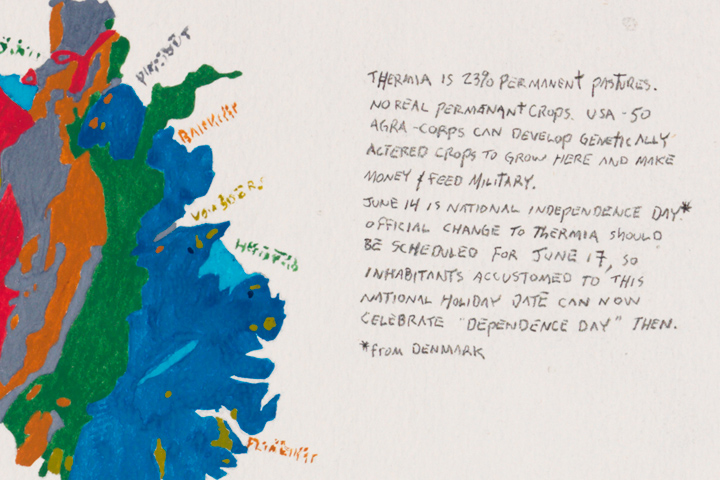 THERMIA IS 23% PERMANENT PASTURES.
NO REAL PERMANANT CROPS. USA - 50
AGRA-CORPS CAN DEVELOP GENETICALLY
ALTERED CROPS TO GROW HERE AND MAKE
MONEY & FEED MILITARY.
JUNE 14 IS NATIONAL INDEPENDENCE DAY*
OFFICIAL CHANGE TO THERMIA SHOULD
BE SCHEDULED FOR JUNE 17, SO
INHABITANTS ACCUSTOMED TO THIS
NATIONAL HOLIDAY DATE CAN NOW
CELEBRATE "DEPENDENCE DAY" THEN.
*FROM DENMARK